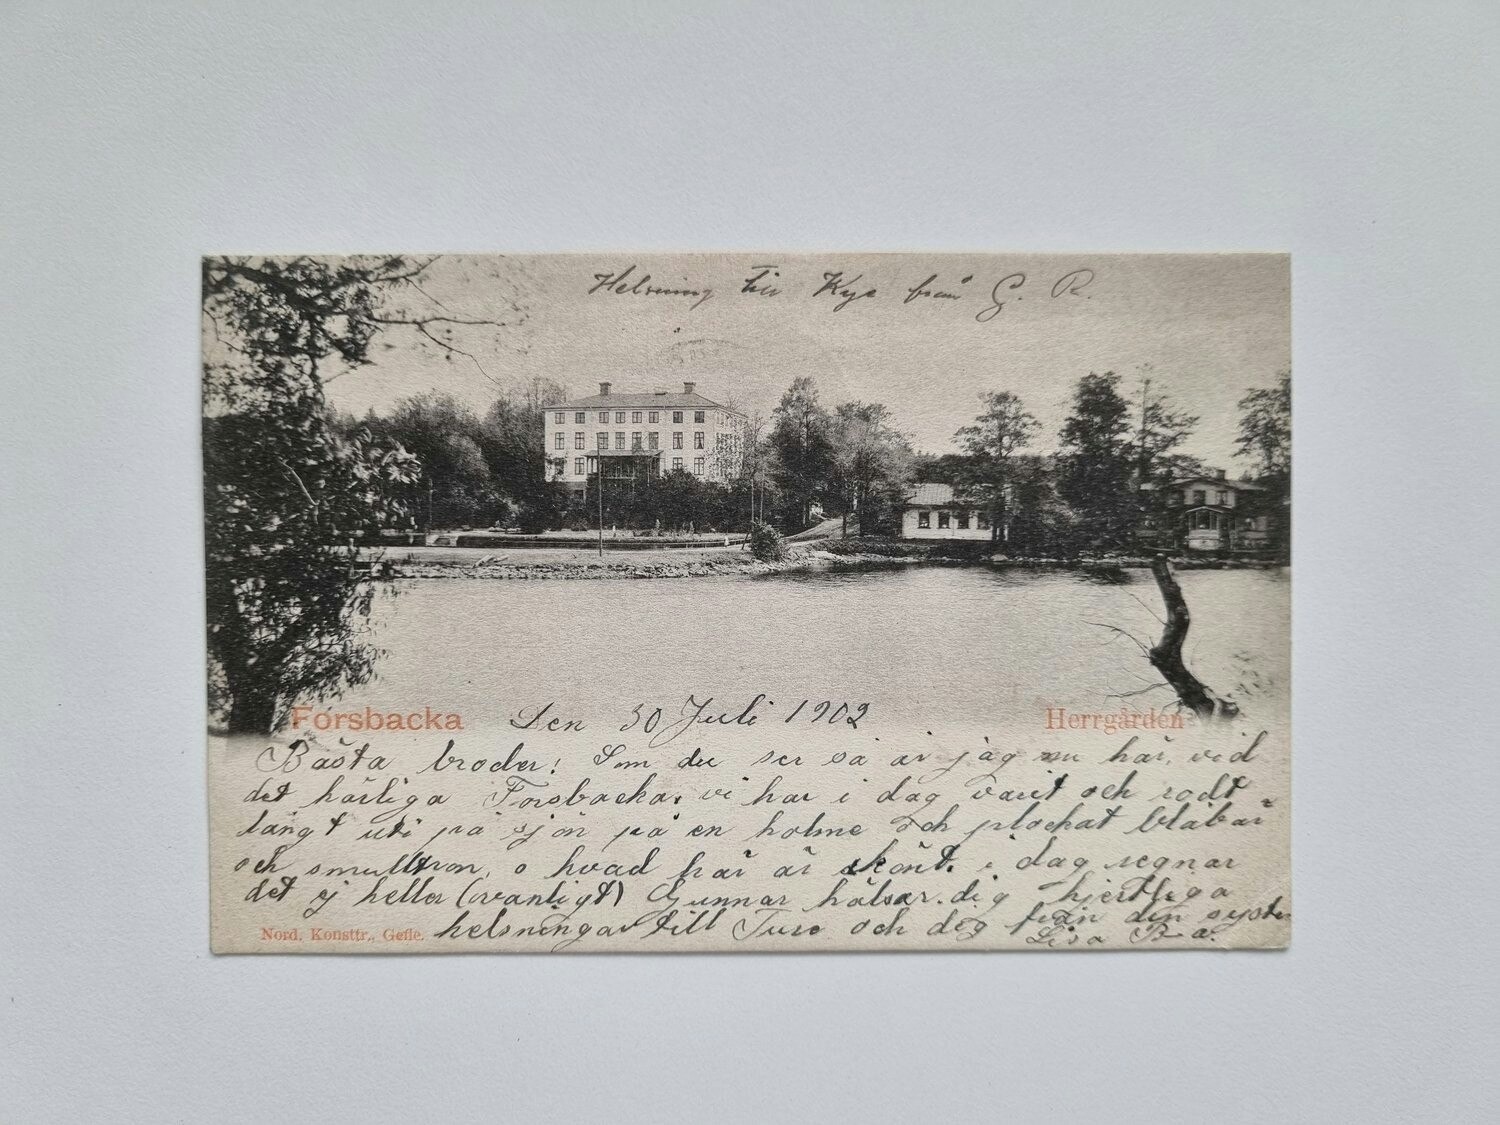 Helsning till Kye från G. R.
Forsbacka Den 30 Juli 1902 Herrgården
Bästa broder! Som du ser så är jag nu här, vid
det härliga Forsbacka, vi har i dag varit och rodt
långt uti på sjön på en holme och plockat blåbär
och smulltron, o hvad här är skönt. i dag regnar
det ej heller (ovanligt) Gunnar hälsar dig hjertliga
helsningar till Ture och dig från din syster
Nord. Konsttr., Gefle. Lisa